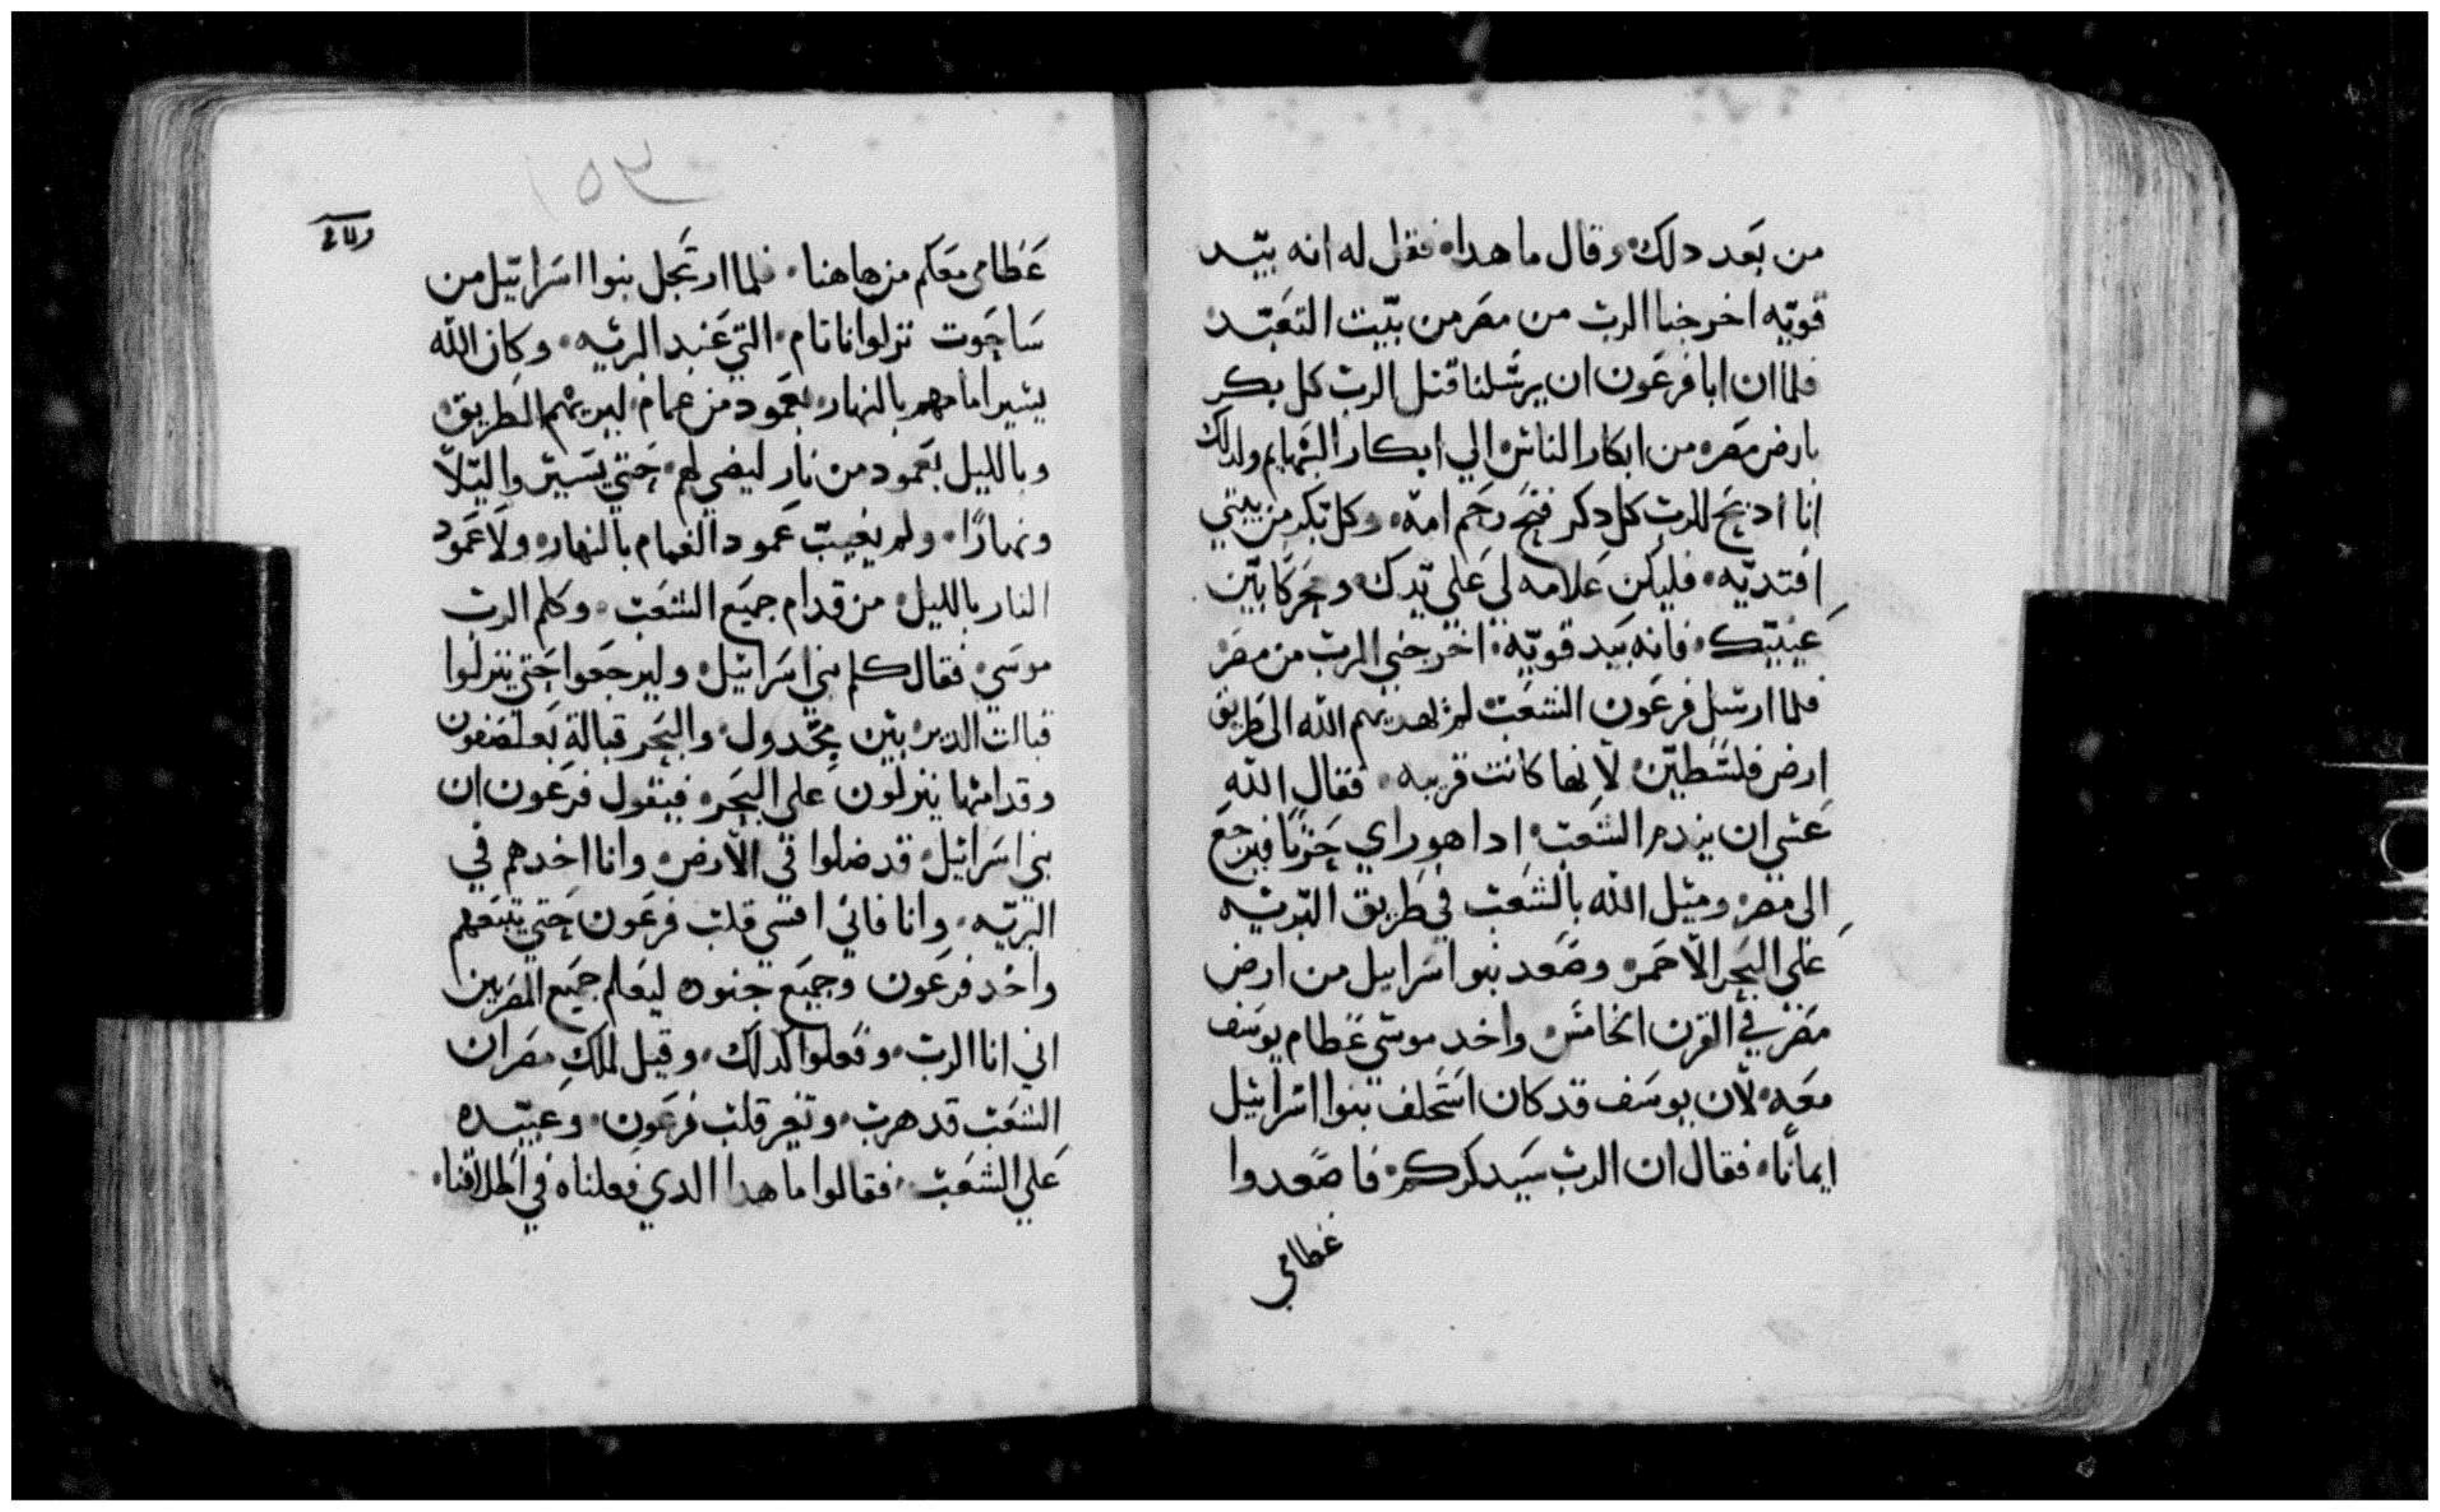 من بعد دلك وقال ما هدا فقل له انه بيد
قويه اخرجنا الرب من مصر من بيت التعبد
فلما ان ابا فرعون ان يرسلنا قتل الرب كل بكر
بارض مصر من ابكار الناس الي ابكار البهايم ولدلك
انا ادبح للرب كل دكر فتح رحم امه وكل بكر من بيتي
افتديه فليكن علامه لي علي يدك ومحركا بين
عينيك فانه بيد قويه اخرجني الرب من مصر
فلما ارسل فرعون الشعب لم يهديهم الله الى طريق
ارض فلسطين لانها كانت قريبه فقال الله
عسي ان يندم الشعب ادا هو راي حزنا فيرجع
الى مصر وميل الله بالشعب في طريق البريه
على البحر الاحمر وصعد بنوا اسراييل من ارض
مصر في القرن الخامس واخد موسي عظام يوسف
معه لان يوسف قد كان استحلف بنوا اسرائيل
ايمانا فقال ان الرب سيدكركم فاصعدوا
عظامي
١٥٣
عظامي معكم من هاهنا فلما ارتحل بنوا اسرائيل من
ساحوت نزلوا ناتام التي عند البريه وكان الله
يسير امامهم بالنهار بعمود من غمام ليريهم الطريق
وبالليل بعمود من نار ليضي لهم حتي يسيروا ليلا
ونهارا ولم يغيب عمود الغمام بالنهار ولا عمود
النار بالليل من قدام جميع الشعب وكلم الرب
موسي فقال كلم بني اسرائيل وليرجعوا حتي ينزلوا
قبالت الدير بين مجدول والبحر قبالة بعلصفون
وقدامها ينزلون علي البحر فيقول فرعون ان
بني اسرائيل قد ضلوا في الارض وانا اخدهم في
البريه وانا فاني اقسي قلب فرعون حتي يتبعهم
واخد فرعون وجميع جنوده ليعلم جميع المصريين
اني انا الرب وفعلوا كدلك وقيل لملك مصر ان
الشعب قد هرب وتغير قلب فرعون وعبيده
علي الشعب فقالوا ما هدا الدي فعلناه في اطلاقنا